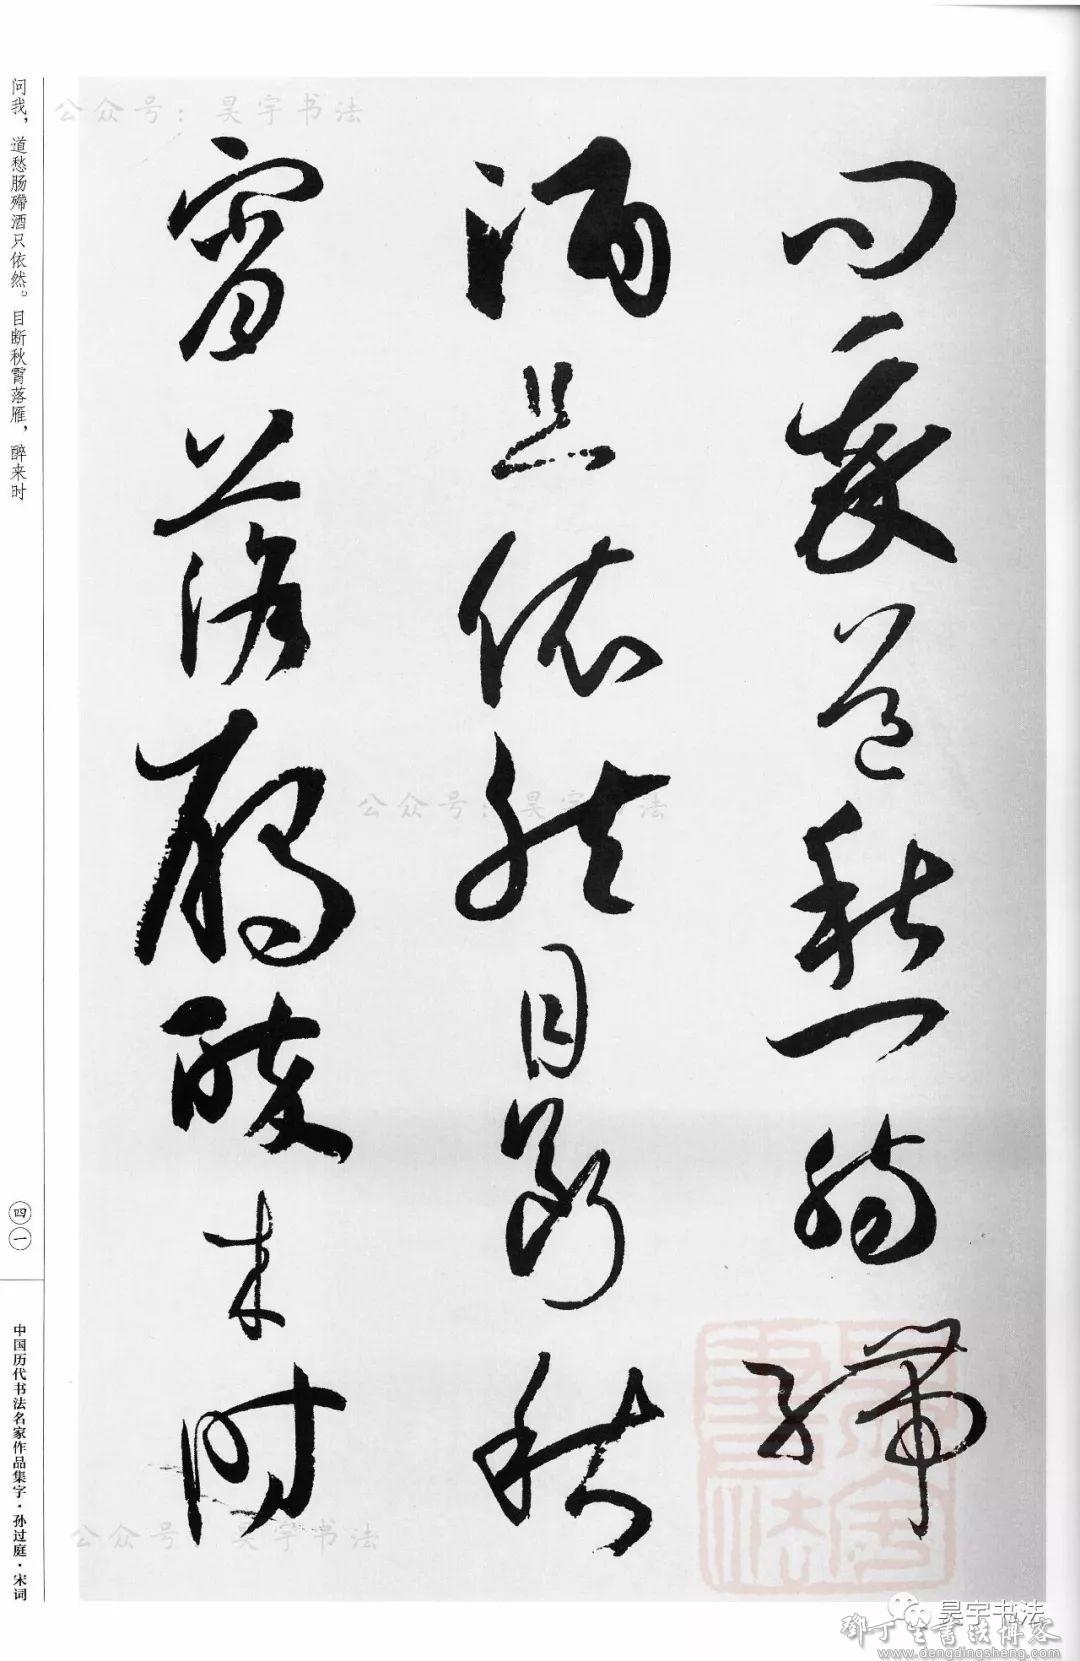 问我道愁肠殢
酒只依然目断秋
霄落雁醉来时
问我，道愁肠殢酒只依然。目断秋霄落雁，醉来时
四一
中国历代书法名家作品集字·孙过庭·宋词
公众号：昊宇书法
公众号：昊宇书法
公众号：昊宇书法
昊宇书法
邓丁生书法博客
www.dengdingsheng.com